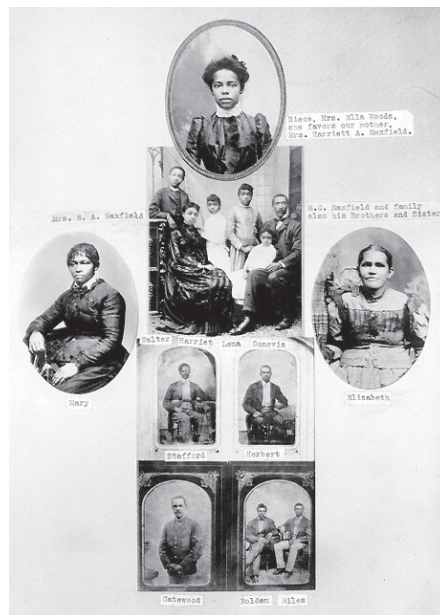 Niece, Mrs. Ella Woods,
she favors our mother,
Mrs. Harriett A. Maxfield.
Mrs. R. A. Maxfield
M.C. Maxfield and family
also his Brothers and Sister
Walter Harriet Lena Genevia
Mary
Elizabeth
Stafford
Herbert
Gatewood
Bolden Miles